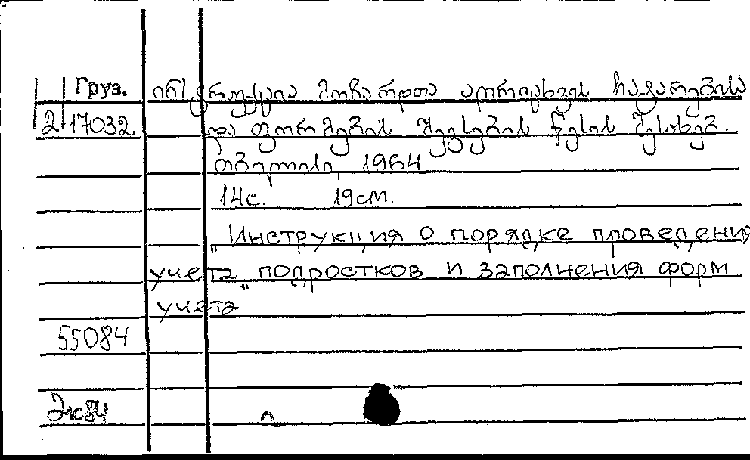 Груз. ინსტრუქცია მოზარდთა აღრიცხვის ჩატარების
2 17032 და ფორმების შევსების წესის შესახებ.
თბილისი, 1964
14с. 19см.
"Инструкция о порядке проведения
учета подростков и заполнения форм
учета"
55084